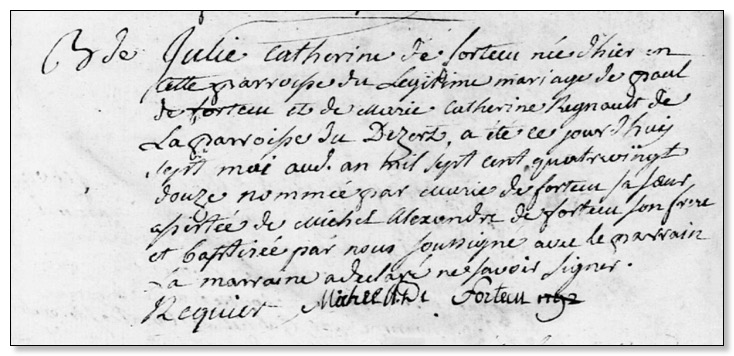 B de Julie Catherine de forteu née d'hier en
cette parroisse du Legitime mariage de paul
de forteu et de Marie Catherine Regnault de
La parroisse du Dezert, a été ce jourd'huy
sept mai aud. an mil sept cent quatrevingt
douze nommée par Marie de forteu sa sœur
assistée de Michel Alexandre de forteu son frere
et baptisée par nous soussigné avec le parrain
La marraine a declaré ne savoir signer.
Requier Michel Forteu